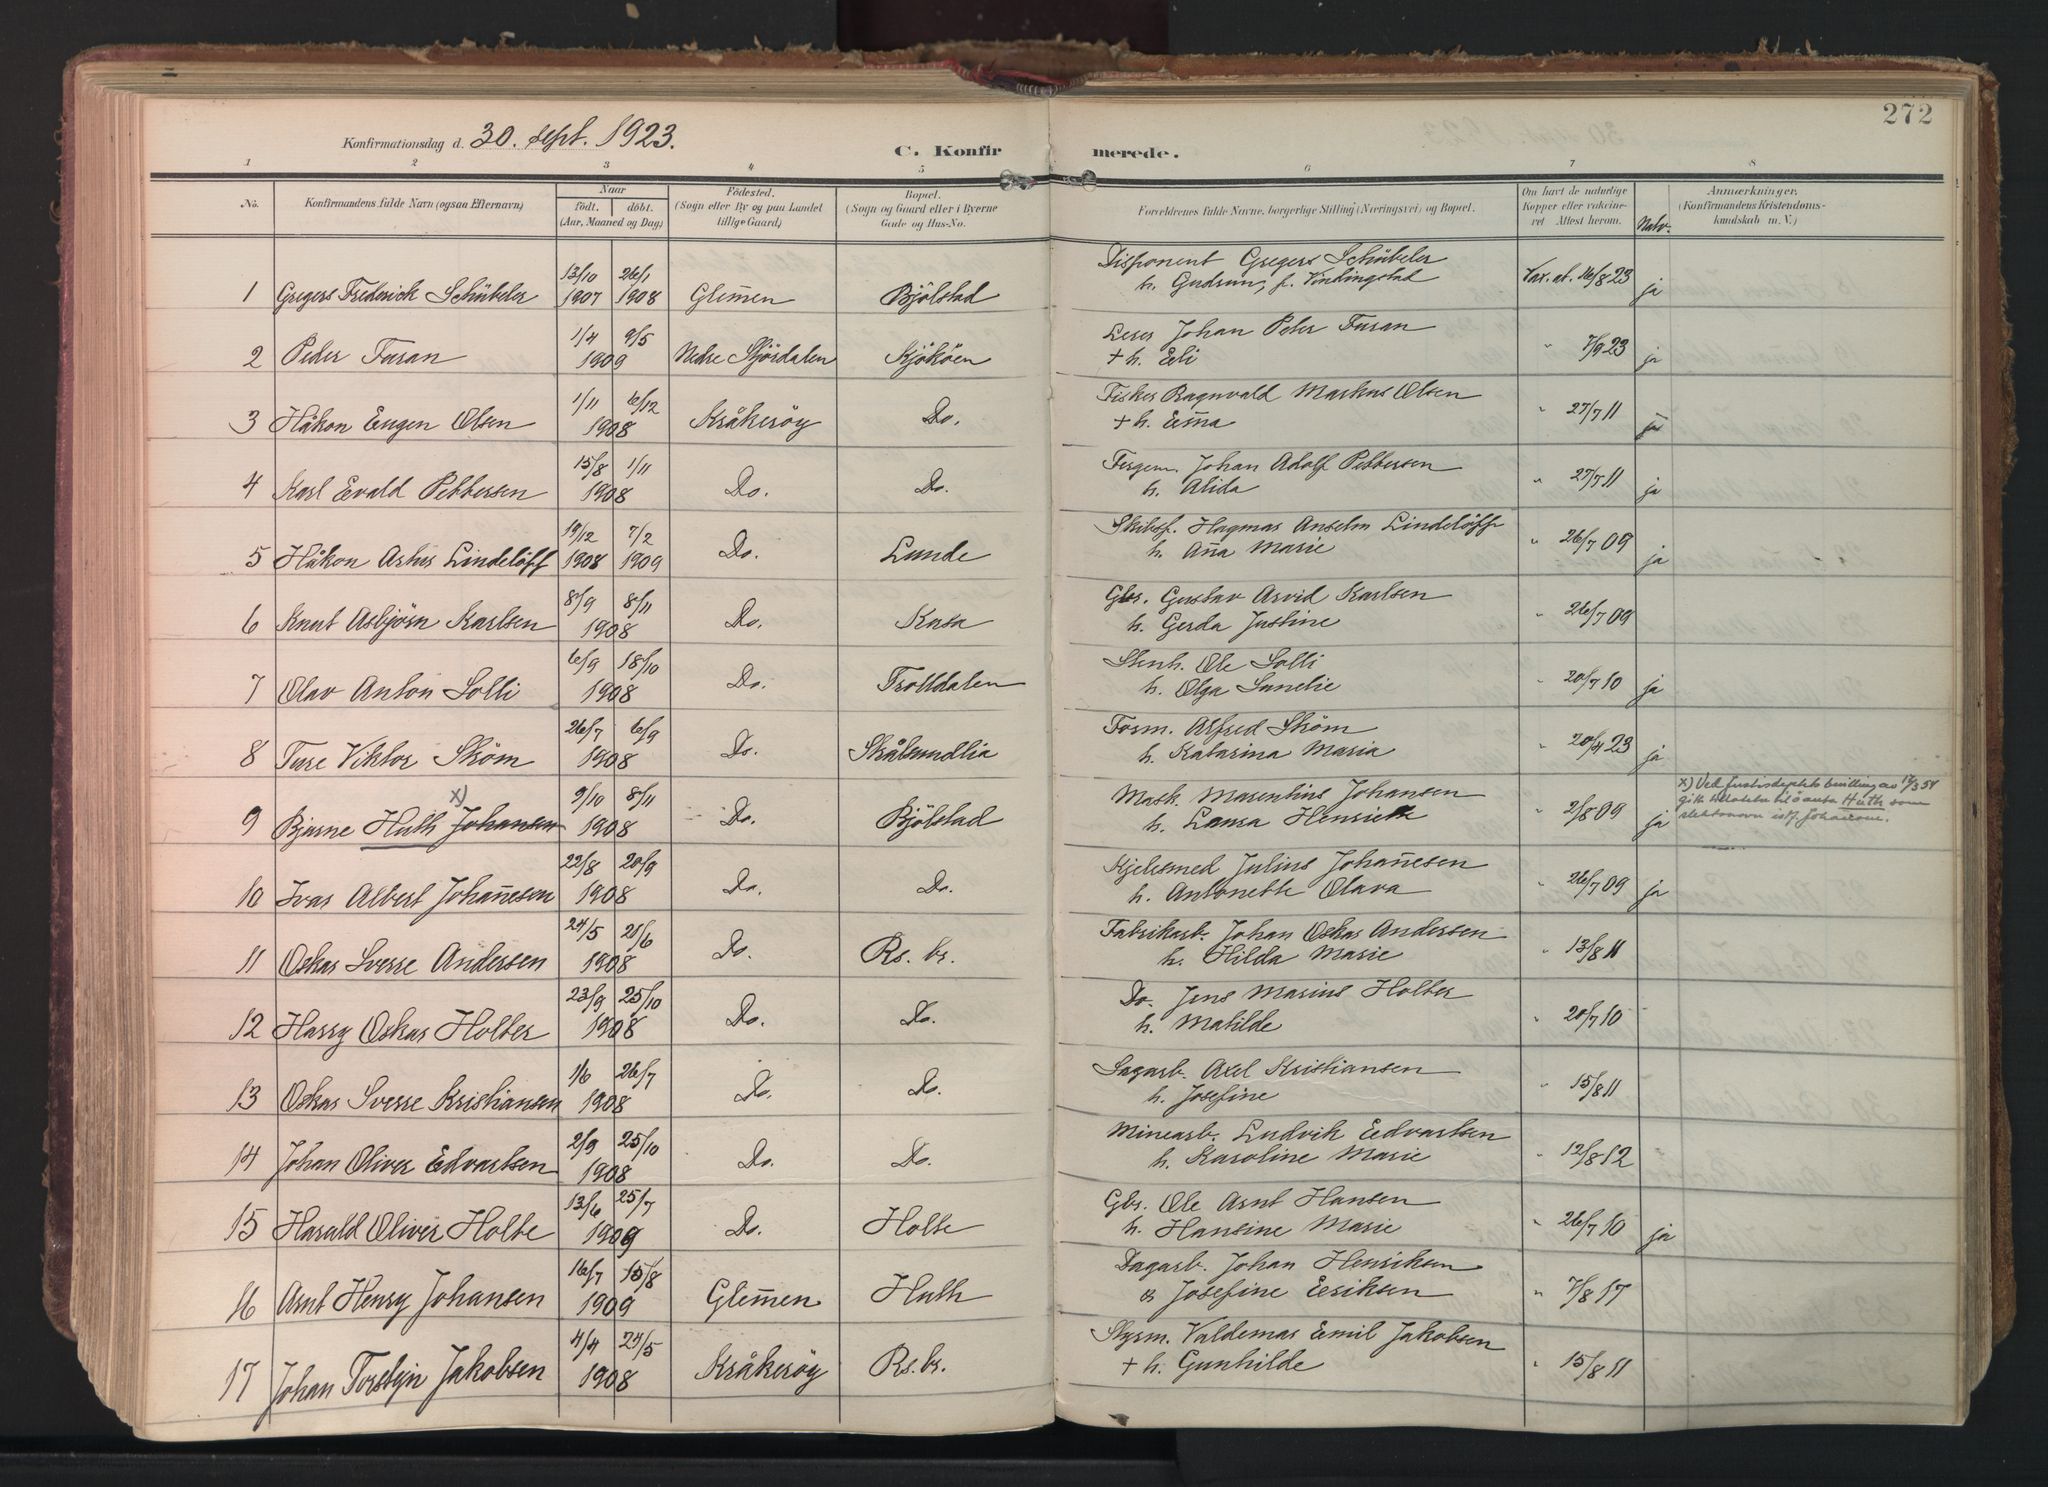 272
Konfirmationsdag d. 30. sept. 1923.
C. Konfirmerede.
1 2 3 4 5 6 7 8
No.
Konfirmandens fulde Navn (ogsaa Efternavn)
Naar
födt. döbt.
(Aar, Maaned og Dag)
Födested.
(Sogn eller By og paa Landet
tillige Gaard)
Bopæl.
(Sogn og Gaard eller i Byerne
Gade og Hus-No.
Forældrenes fulde Navne, borgerlige Stilling (Næringsvei) og Bopæl.
Om havt de naturlige
Kopper eller vakcine-
ret Attest herom.
Natv.
Anmærkninger.
(Konfirmandens Kristendoms-
kundskab m. V.)
13/10 26/1 Disponent Gregers Schübeler
1 Gregers Frederick Schübeler 1907 1908 Glem̄en Bjölstad h. Gudrun, f. Vindingstad Vax. at. 16/8 23 ja
1/4 9/5 Leser Johan Peter Fusan
2 Peder Fusan 1909 Nedre Stjördalen Kjököen + h. Eli " 7/9 23 ja
1/11 6/12 Fisker Ragnvald Markus Olsen
3 Håkon Eugen Olsen 1908 Kråkeröy Do. + h. Em̄a " 27/7 11 ja
15/8 1/11 Fergem. Johan Adolf Pettersen
4 Karl Evald Pettersen 1908 Do. Do. h. Alida " 27/7 11 ja
19/12 7/2 Skibsf. Hagmar Anselm Lindelöff
5 Håkon Artur Lindelöff 1908 1909 Do. Lunde h. An̄a Marie " 26/7 09 ja
8/9 8/11 Gbr. Gustav Arvid Karlsen
6 Knut Asbjörn Karlsen 1908 Do. Kasa h. Gerda Justine " 26/7 09
6/9 18/10 Stenh. Ole Solli
7 Olav Anton Solli 1908 Do. Trolldalen h. Olga Lunelie " 20/7 10 ja
26/7 6/9 Form. Alfred Ström
8 Ture Viktor Ström 1908 Do. Skålundlia h. Katarina Maria " 20/4 23 ja
9/10 8/11 Mask. Marentius Johansen
9 Bjarne Huth x) Johansen 1908 Do. Bjölstad h. Laura Henriette " 2/8 09 ja
x) Ved Justisdeptets bevilling av 17/3 54
gitt tillatelse til å anta Huth som
slektsnavn istf. Johansen.
22/8 20/9 Kjelesmed Julius Johan̄esen
10 Ivar Albert Johan̄esen 1908 Do. Do. h. Antonette Olava " 26/7 09 ja
24/5 28/6 Fabrikarb. Johan Oskar Andersen
11 Oskar Sverre Andersen 1908 Do. Rs. br. h. Hilda Marie " 13/8 11
23/9 25/10 Do. Jens Marius Holter
12 Harry Oskar Holter 1908 Do. Do. h. Matilde " 20/7 10
1/6 26/7 Sagarb. Axel Kristiansen
13 Oskar Sverre Kristiansen 1908 Do. Do. h. Josefine " 15/8 11
2/9 25/10 Minearb. Ludvik Edvartsen
14 Johan Oliver Edvartsen 1908 Do. Do. h. Karoline Marie " 12/8 12
13/6 25/7 Gbr. Ole Arnt Hansen
15 Harald Oliver Holte 1909 Do. Holte h. Hansine Marie " 26/7 10 ja
16/7 15/8 Dagarb. Johan Henriksen
16 Arnt Henry Johansen 1909 Glem̄en Huth o Josefine Eriksen " 7/8 17
4/4 24/5 Styrm. Valdemar Emil Jakobsen
17 Johan Torstejn Jakobsen 1908 Kråkeröy Rs. br. + h. Gunhilde " 15/8 11